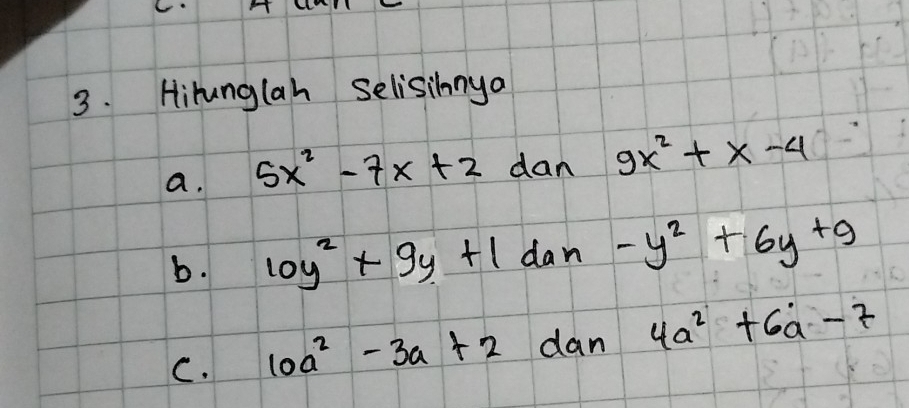 3. Hitunglah Selisihnya
a. 5x² - 7x + 2 dan 9x² + x - 4
b. 10y² + 9y + 1 dan -y² + 6y + 9
c. 10a² - 3a + 2 dan 4a² + 6a - 7